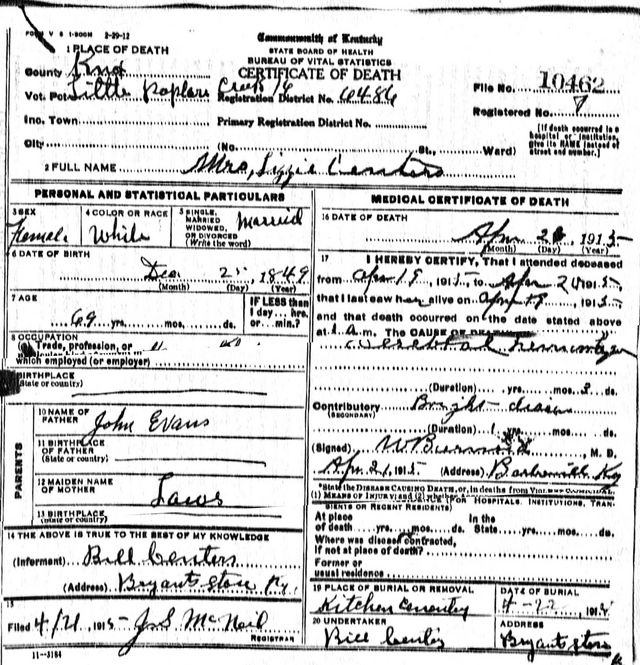 FORM V S 1-500M 2-29-12
Commonwealth of Kentucky
STATE BOARD OF HEALTH
BUREAU OF VITAL STATISTICS
CERTIFICATE OF DEATH
1 PLACE OF DEATH
County Knox
Vot. Pct. Little Poplar Creek 16 Registration District No. 6486
File No. 10462
Inc. Town Primary Registration District No.
Registered No. 7
City (No. St., Ward)
[If death occurred in a hospital or institution, give its NAME instead of street and number.]
2 FULL NAME Mrs, Lizzie Centers
PERSONAL AND STATISTICAL PARTICULARS
3 SEX Female
4 COLOR OR RACE White
5 SINGLE, MARRIED WIDOWED, OR DIVORCED (Write the word) Married
6 DATE OF BIRTH
Dec 25 1849
(Month) (Day) (Year)
7 AGE
69 yrs. mos. ds.
IF LESS than 1 day... hrs. or... min.?
8 OCCUPATION
(a) Trade, profession, or
which employed (or employer)
BIRTHPLACE
(State or country)
PARENTS
10 NAME OF FATHER John Evans
11 BIRTHPLACE OF FATHER (State or country)
12 MAIDEN NAME OF MOTHER Laws
13 BIRTHPLACE
(State or country)
14 THE ABOVE IS TRUE TO THE BEST OF MY KNOWLEDGE
(Informant) Bill Centers
(Address) Bryants Store Ky.
15
Filed 4/21 1915 J S McNeil
REGISTRAR
11-3184
MEDICAL CERTIFICATE OF DEATH
16 DATE OF DEATH
Apr 1915
(Month) (Day) (Year)
17 I HEREBY CERTIFY, That I attended deceased
from Apr 19 1915, to Apr 1915,
that I last saw her alive on Apr 19 1915
and that death occurred on the date stated above
at 1 a.m. The CAUSE OF DEATH
Cerebral
(Duration) yrs. mos. 3 ds.
Contributory Bright disease
(SECONDARY)
(Duration) 1 yrs. mos. ds.
(Signed) W Burnside, M. D.
Apr 21 1915 (Address) Barbourville Ky
*State the DISEASE CAUSING DEATH, or, in deaths from VIOLENT CAUSES,
(1) MEANS OF INJURY; and (2) whether
FOR HOSPITALS, INSTITUTIONS, TRANSIENTS OR RECENT RESIDENTS)
At place of death yrs. mos. ds. In the State yrs. mos. ds.
Where was disease contracted,
if not at place of death?
Former or
usual residence
19 PLACE OF BURIAL OR REMOVAL
Kitchen Cemetery
DATE OF BURIAL
4-22 191
20 UNDERTAKER
Bill Centers
ADDRESS
Bryants Store